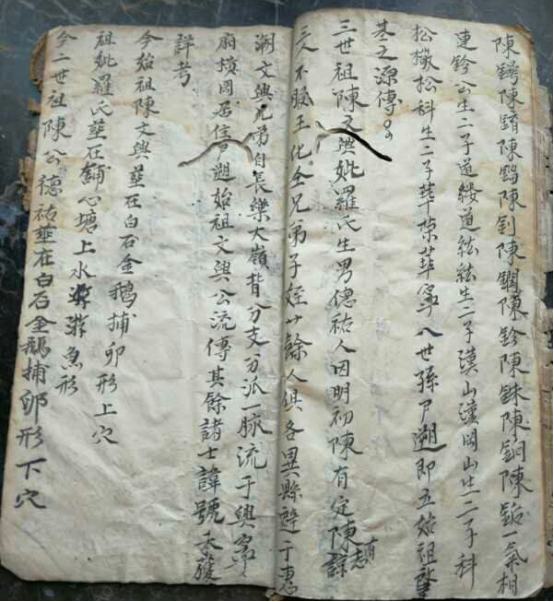 陳錫陳錥陳錫陳釗陳鐗陳鈐陳銖陳銅陳鋊一氣相
連鈐公生二子道綾道紘紘生二子漢山漢岡山生二子科
松椽松科生二子華榮華寧八世孫尸遡即五始祖肇
基之源傳
三世祖陳文興妣羅氏生男德祐人因明初陳有定陳有諒
三人不服王化全兄弟子姪廿餘人俱各異縣避于惠
潮文興兄弟自長樂大嶺背分支分派一脈流于興寧
府橫岡居住尸遡始祖文興公流傳其餘諸士諱號未獲
詳考
今始祖陳文興塋在白石金鵝捕卵形上穴
祖妣羅氏塋在鋪心塘上水游游魚形
今二世祖陳公德祐塋在白石金鵝捕卵形下穴